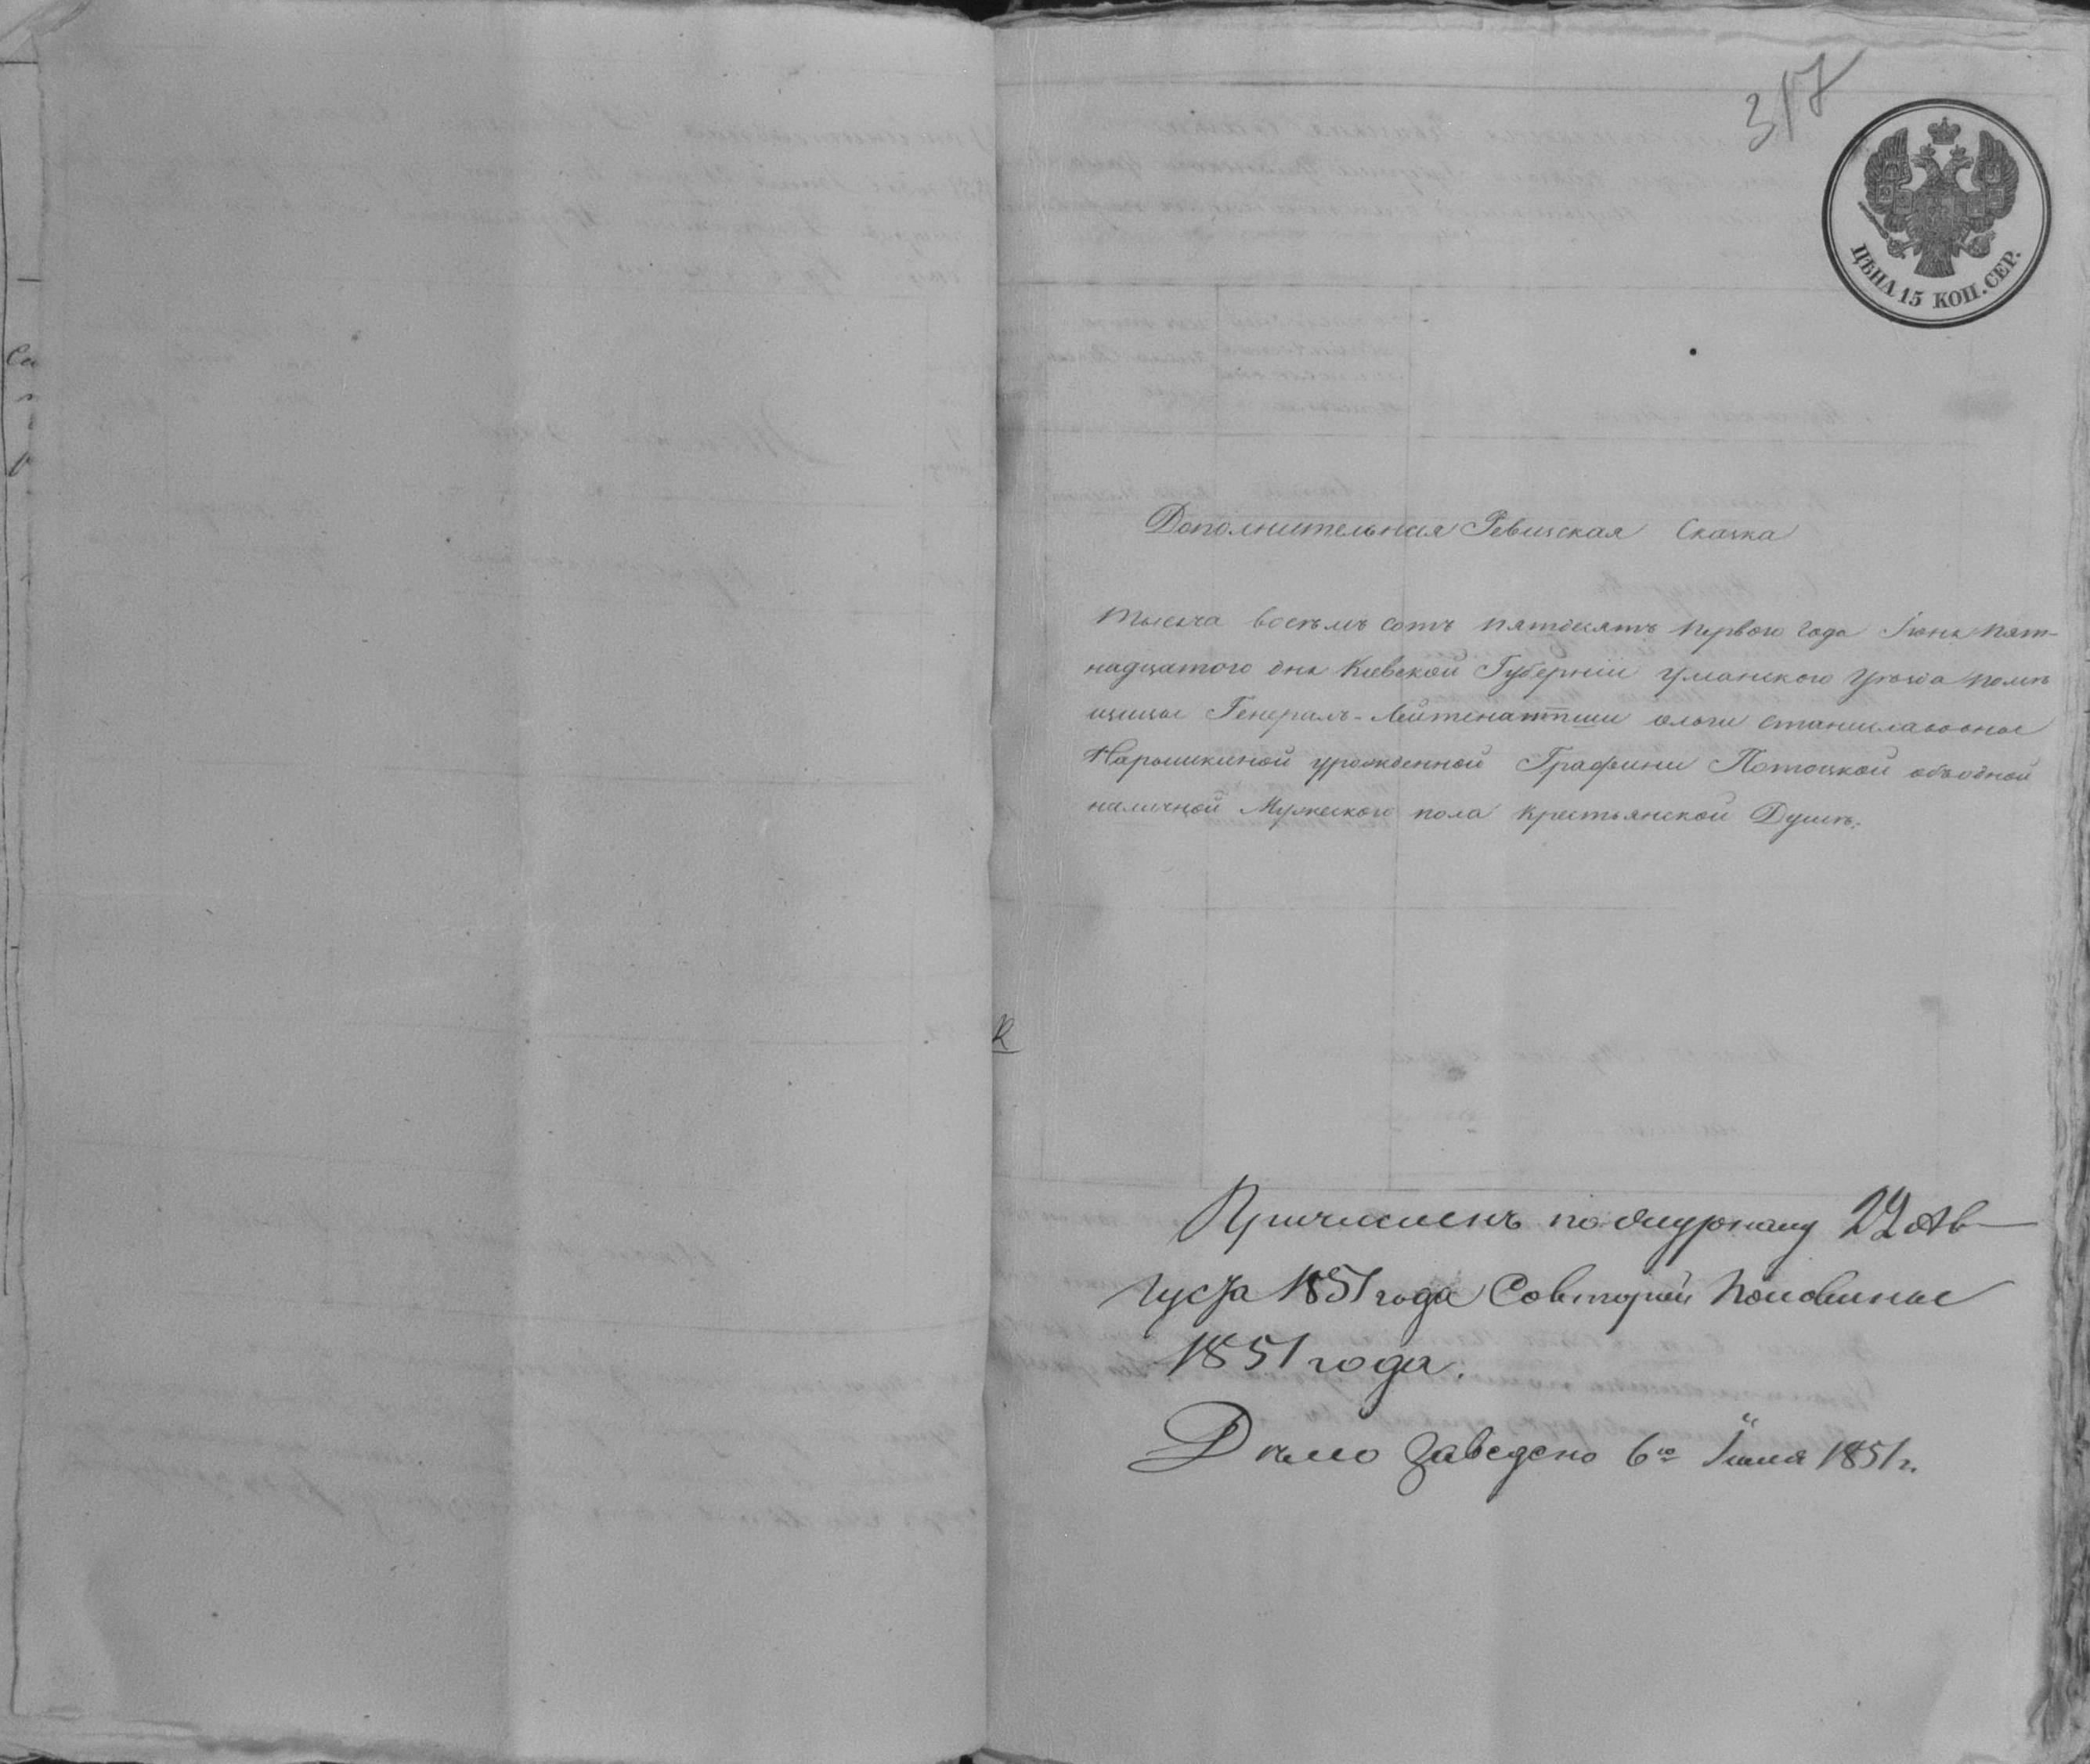 317
ЦѢНА 15 КОП. СЕР.
Дополнительная Ревизская Сказка
Тысяча восѣмъ сотъ пятдесятъ первого года Iюня пят-
надцатого дня Кіевской Губерніи Уманского Уѣзда помѣ
щицы Генералъ-Лейтенантши Ольги Станиславовны
Нарышкиной урожденной Графини Потоцкой объ одной
наличной Мужеского пола крестьянской Душѣ.
Причисленъ по журналу 22 Ав-
густа 1851 года Со второй половины
1851 года.
Дѣло заведено 6го Iюля 1851 г.